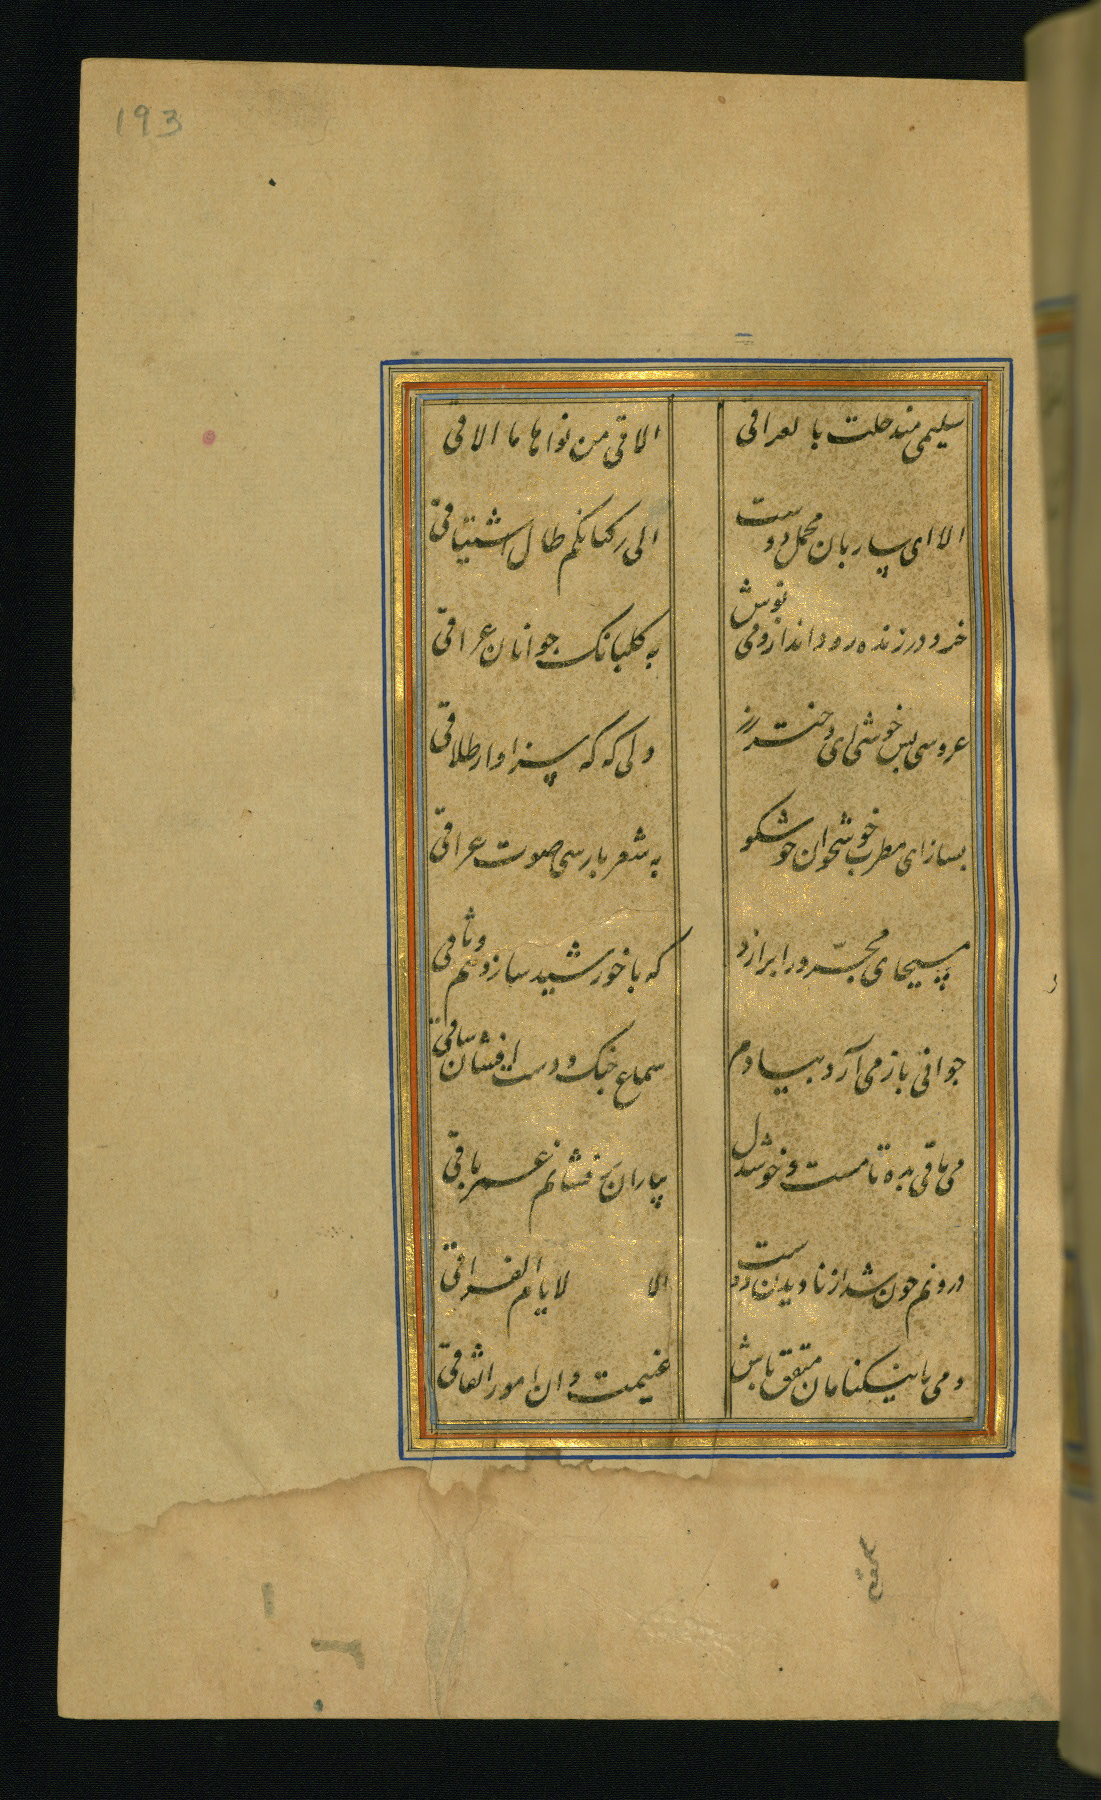 193
سلیمی منذ حلت بالعراقی
الاقی من نواها ما الاقی
الا ای ساربان محمل دوست
الی رکبانکم طال اشتیاقی
خرد در زنده رود انداز و می نوش
به کلبانک جوانان عراقی
عروسی بس خوشی ای دختر رز
ولی که که سزاوار طلاقی
بساز ای مطرب خوشخوان خوشکو
به شعر بارسی صوت عراقی
مسیحای مجرد را برازد
که با خورشید سازد هم وثاقی
جوانی باز می آرد بیادم
سماع جنک و دست افشان ساقی
می باقی بده تا مست و خوشدل
بیاران بر فشانم عمر باقی
درونم خون شد از نادیدن دوست
الا لایام الفراقی
دمی با نیکنامان متفق باش
غنیمت دان امور اتفاقی